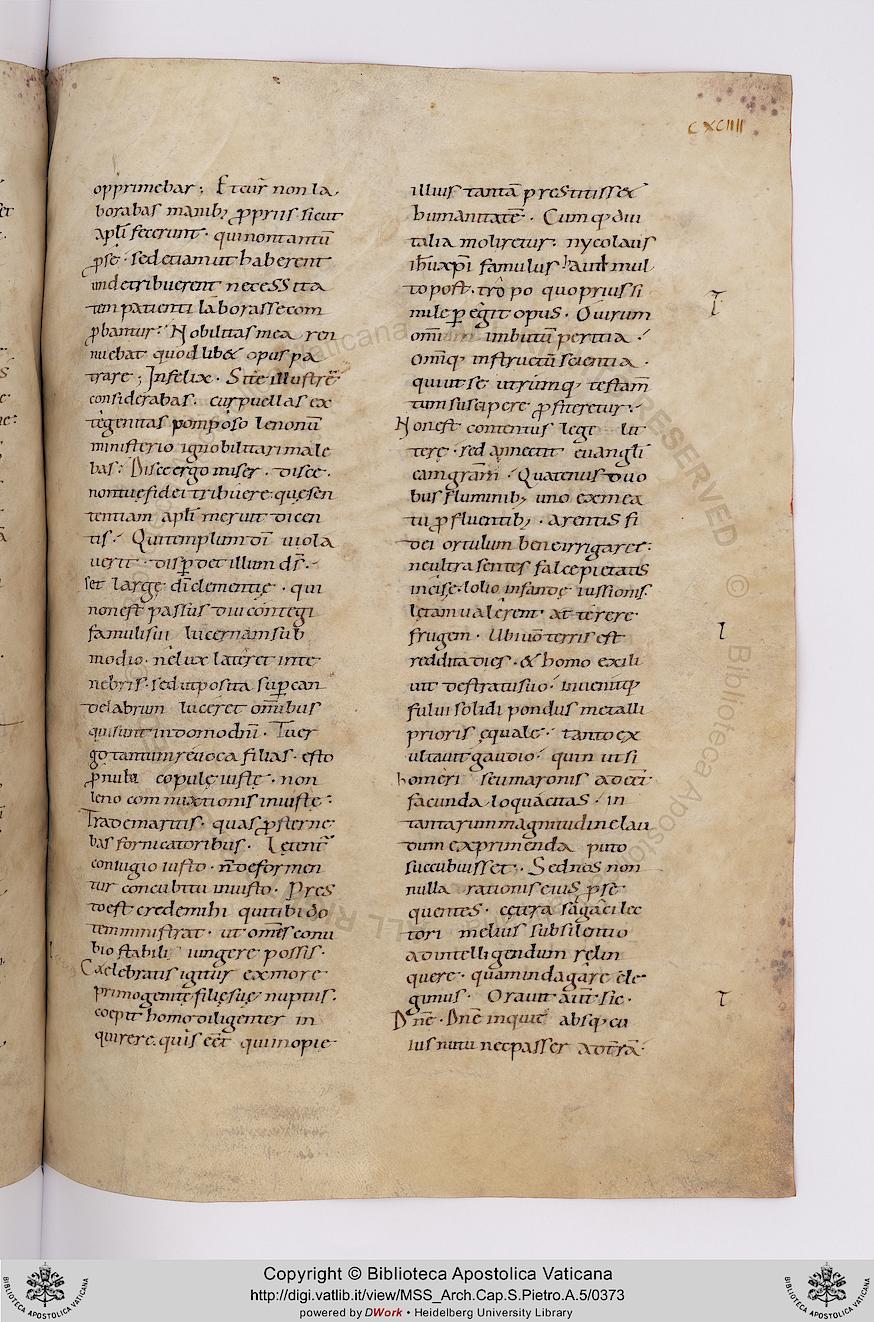 CXCIIII
opprimebar ; Et cur̄ non la,
borabas manib; ꝓpriis sicut
apl̄i fecerunt · qui non tantū
ꝓ se · sed etiam ut haberent
unde tribuerent necessita
tem patienti laborasse com
ꝓbantur : Nobilitas mea ren
nuebat quod lib& opus pa
trare ; Infelix · Si te illustrē
considerabas · cur puellas ex
te genitas pomposo lenonū
ministerio ignobilitari male
bas : Disce ergo miser · disce ·
non tuę fidei tribuere · quę sen
tentiam apl̄i meruit dicen
tis · Qui templum dī uiola
uerit · disꝑdet illum ds̄ ·
set largę dī clementię · qui
non est passus diu contegi
famuli sui lucernam sub
modio · ne lux lateret in te
nebris · sed ut posita suꝑ can
delabrum luceret om̄ibus
qui sunt in domo dn̄i · Tu er
go tantum reuoca filias · esto
ꝓnuba copulę iustę · non
leno commixtionis iniustę :
Trade maritis · quas ꝓsterne
bas fornicatoribus · Letent̄
coniugio iusto · n̄ deformen
tur concubitu iniusto · Pres
to est crede mihi qui tibi do
tem ministrat · ut om̄es conu
bio stabili iungere possis ·
Caelebratis igitur ex more
primogenitę filię suę nuptiis ·
coepit homo diligenter in
quirere · quis eēt qui inopię
illius tantā prestitisset
humanitatē · Cumq; diu
talia moliretur · nycolaus
ih̄u xp̄i famulus haut mul
to post · trō po quo prius si
mile ꝑegit opus · O uirum
om̄i imbutum peritia ·
Om̄iq; instructū scientia ·
qui ut se utriusq; testam̄
tum suscipere ꝓfiteretur ·
Non est contentus legē lit
terę · sed annectit euangli
cam gram̄ · Quatenus duo
bus fluminib; uno ex mea
tu ꝓfluentib; · arentis fi
dei ortulum bene irrigaret :
ne ultra sentes falce pietatis
incise · lolio infandę iussionis
lętam ualerent atterere
frugem · Ubi uō terris est
reddita dies · & homo exili
uit de stratu suo · inuenitq;
fului solidi pondus metalli
prioris ęquale · tanto ex
ultauit gaudio · quin ut si
homeri seu maronis adeēt
facunda loquacitas · in
tantarum magnitudine lau
dum exprimenda puto
succubuisset · Sed nos non
nulla rationis eius ꝓse
quentes · cętera sagaci lec
tori melius sub silentio
ad intelligendum relin
quere · quam indagare ele
gimus · Orauit aut̄ sic ·
Dn̄e · Dn̄e inquit absq; cu
ius nutu nec passer ad trā ·
Copyright © Biblioteca Apostolica Vaticana
http://digi.vatlib.it/view/MSS_Arch.Cap.S.Pietro.A.5/0373
powered by DWork • Heidelberg University Library